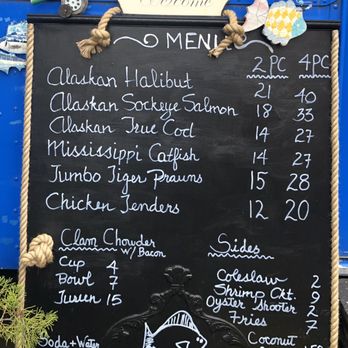 Welcome
MENU
2 PC 4 PC
Alaskan Halibut 21 40
Alaskan Sockeye Salmon 18 33
Alaskan True Cod 14 27
Mississippi Catfish 14 27
Jumbo Tiger Prawns 15 28
Chicken Tenders 12 20
Clam Chowder
w/ Bacon
Cup 4
Bowl 7
Jusun 15
Sides
Coleslaw 2
Shrimp Ckt. 9
Oyster Shooter 2
Fries 7
Soda + Water
Coconut